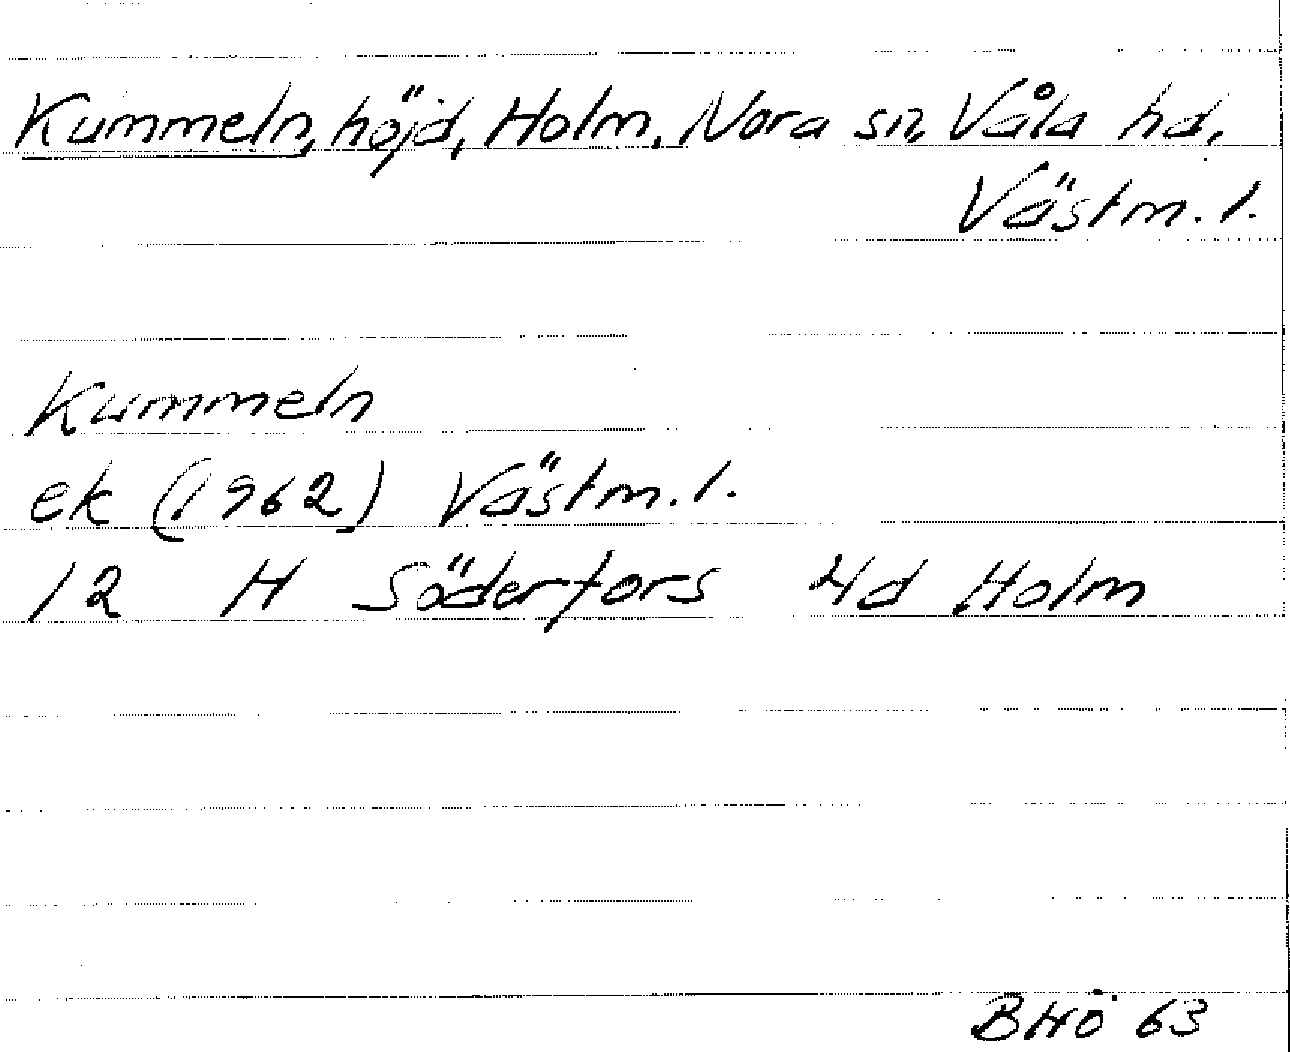 Kummeln, höjd, Holm, Nora sn, Våla hd,
Västm. l.
Kummeln
ek (1962) Västm. l.
12 H Söderfors 4d Holm
BHÖ 63